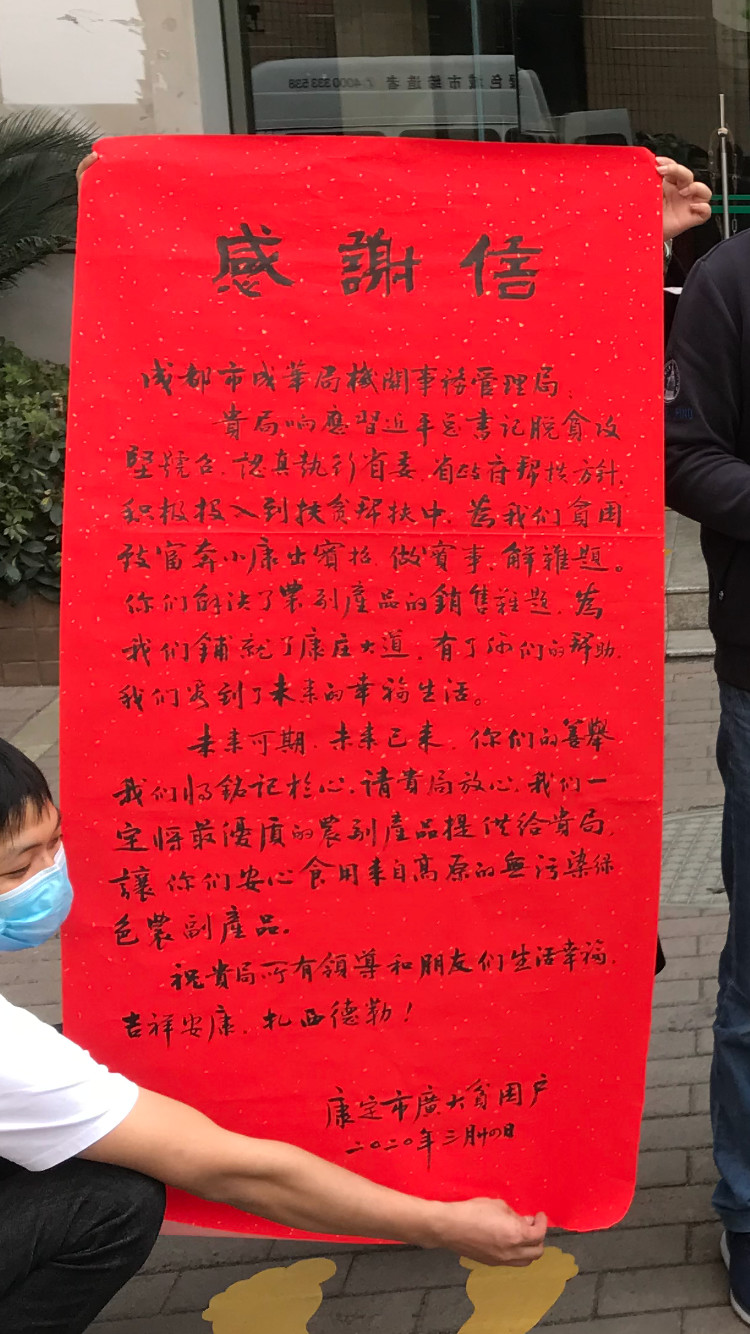 4000 333 538 绿色城市缔造者
感謝信
成都市成華局機關事務管理局:
貴局响應習近平总書记脱貧攻
堅號召,認真執行省委、省政府帮扶方針,
积极投入到扶贫帮扶中,為我们貧困
致富奔小康出實招,做實事,解難題。
你们解决了農副產品的銷售難題,為
我们鋪就了康庄大道,有了你们的帮助,
我们看到了未来的幸福生活。
未来可期,未来已来,你们的善舉
我们将銘記於心,請貴局放心,我们一
定将最優質的農副產品提供给貴局,
讓你们安心食用来自高原的無污染绿
色農副產品。
祝貴局所有領導和朋友们生活幸福,
吉祥安康,扎西德勒!
康定市廣大貧困户
二0二0年三月廿四日